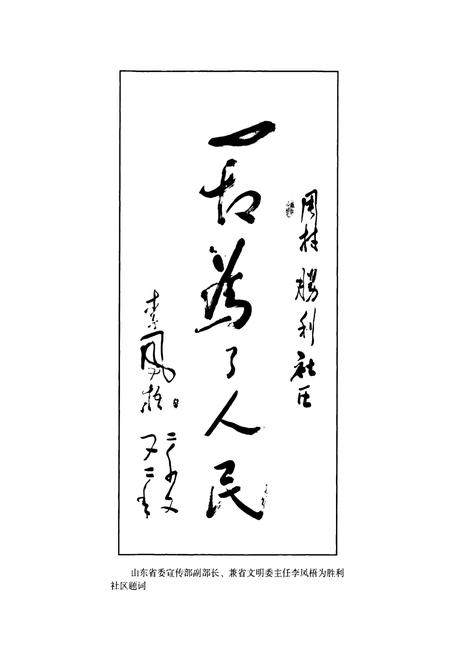 周村勝利社区
一切為了人民
李凤梧
二〇〇
山东省委宣传部副部长、兼省文明委主任李凤梧为胜利
社区题词